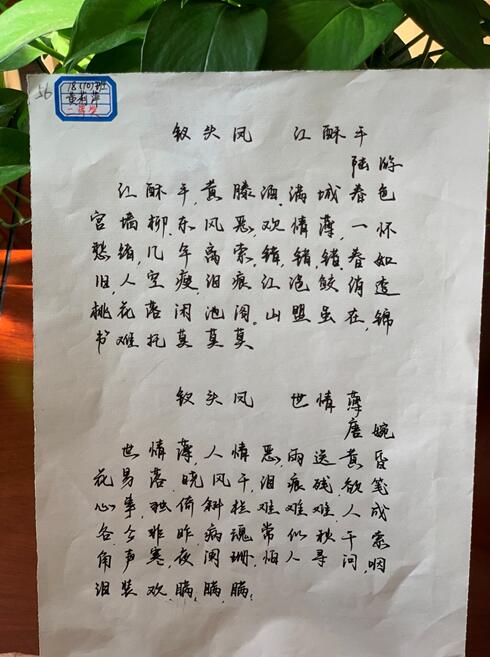 56
钗头凤 红酥手
陆游
红酥手,黄滕酒,满城春色
宫墙柳,东风恶,欢情薄,一怀
愁绪,几年离索,错,错,错,春如
旧,人空瘦,泪痕红浥鲛绡透
桃花落闲池阁。山盟虽在,锦
书难托莫莫莫
钗头凤 世情薄
唐婉
世情薄,人情恶,雨送黄昏
花易落,晓风干,泪痕残,欲笺
心事,独倚斜栏难难难,人成
各今非昨,病魂常似秋千索
角声寒,夜阑珊,怕人寻问,咽
泪装欢,瞒,瞒,瞒。